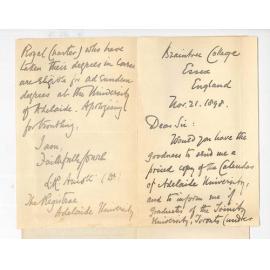 Braintree College
Essex
England
Nov. 21. 1898.
Dear Sir:
Would you have the
goodness to send me a
priced copy of the Calendar
of Adelaide University,
and to inform me if
graduates of the Trinity
University, Toronto (under
Royal Charter) who have
taken their degrees in
are eligible for ad eundem
degrees at the University
of Adelaide. Apologizing
for troubling,
I am,
Faithfully yours
The Registrar
Adelaide University